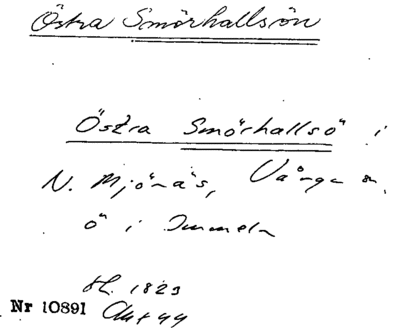 Östra Smörhallsön
Östra Smörhallsö i
N. Mjönäs, Vånga sn,
ö i Immeln
H. 1823
Nr 10891 Akt 44